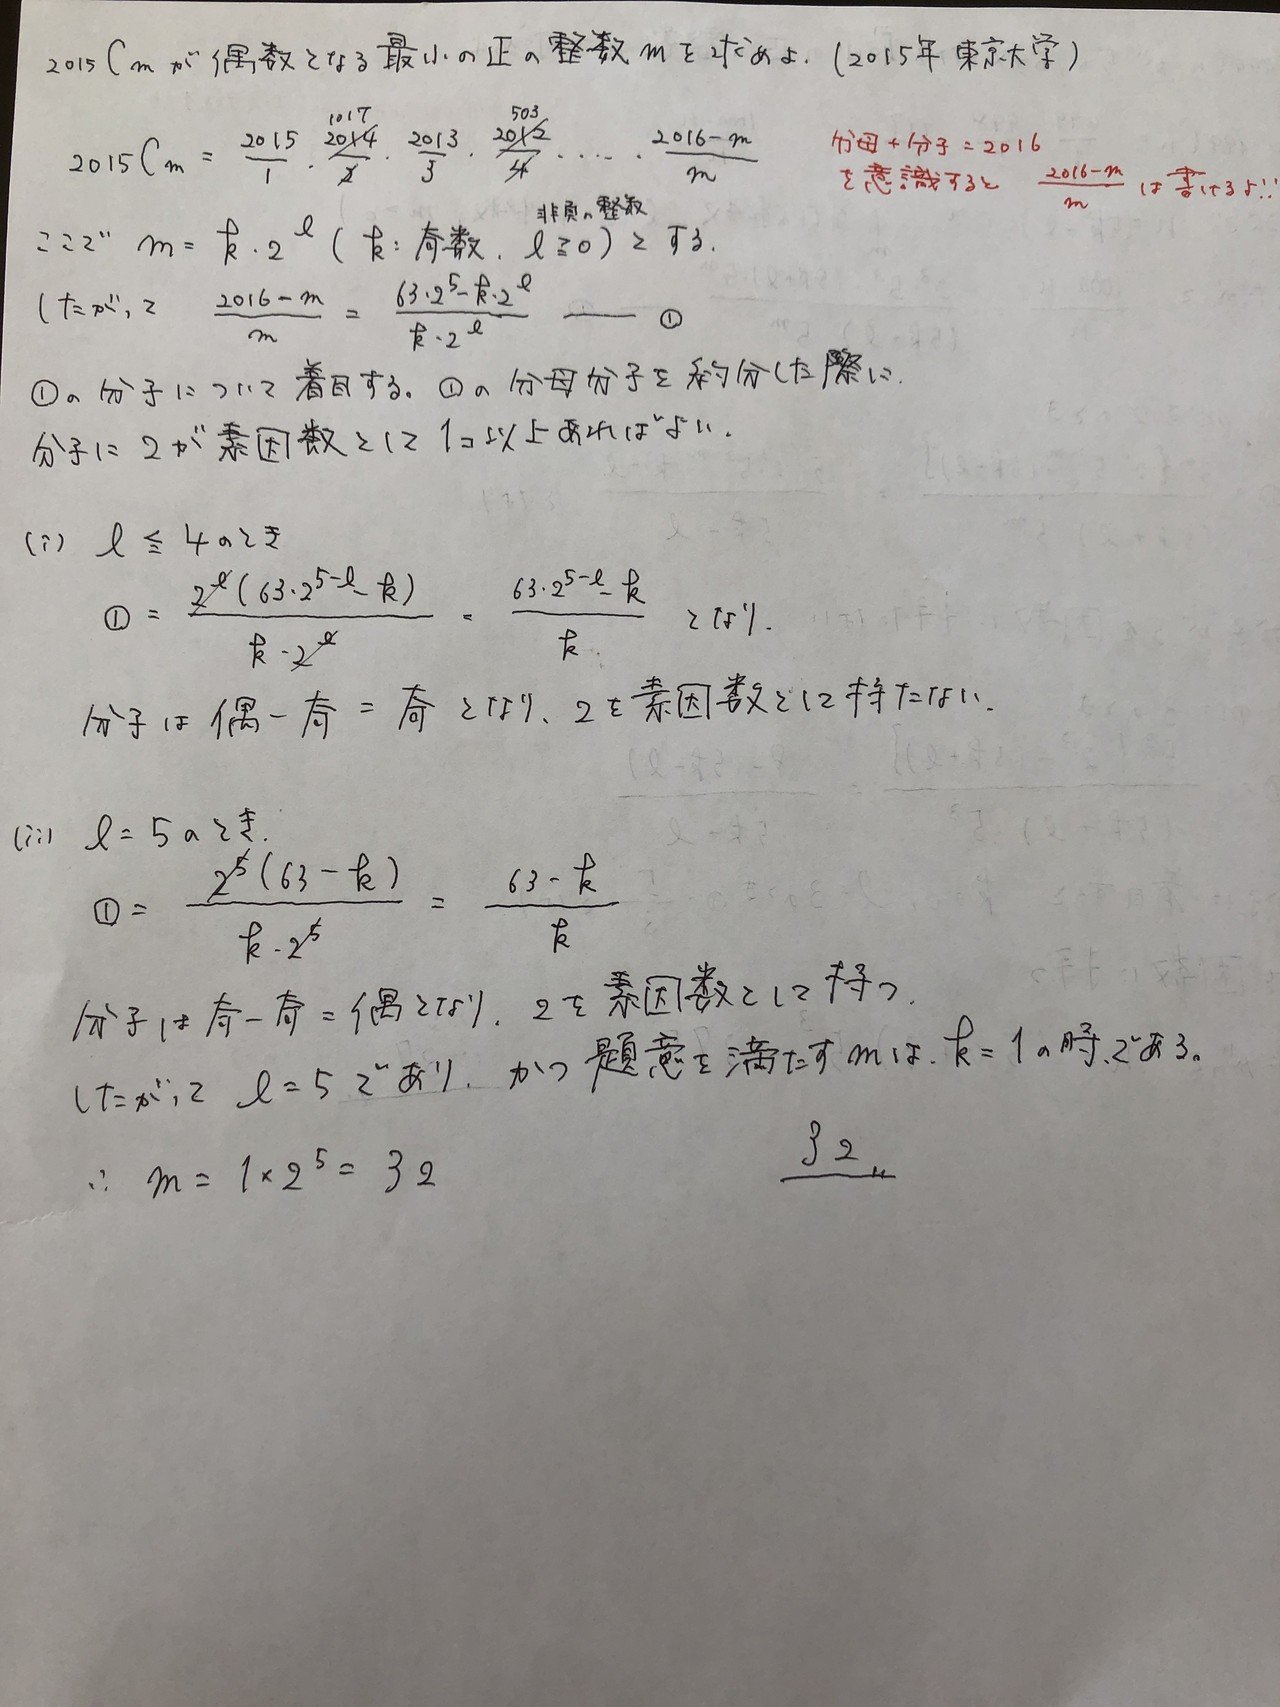 2015Cmが偶数となる最小の正の整数mを求めよ.(2015年 東京大学)
2015Cm = 2015/1 · 2014/2 · 2013/3 · 2012/4 · ‥‥ · 2016-m/m
1017 503
分母+分子=2016
を意識すると 2016-m/m は書けるよ!!
非負の整数
ここで m = k·2^l (k:奇数, l≧0)とする.
したがって 2016-m/m = 63·2^5-k·2^l/k·2^l ―― ①
①の分子について着目する。①の分母分子を約分した際に.
分子に2が素因数として1コ以上あればよい.
(i) l ≦ 4のとき
① = 2^l(63·2^{5-l}-k)/k·2^l = 63·2^{5-l}-k/k となり.
分子は偶-奇=奇となり、2を素因数として持たない.
(ii) l=5のとき.
① = 2^5(63-k)/k·2^5 = 63-k/k
分子は奇-奇=偶となり.2を素因数として持つ.
したがって l=5であり.かつ題意を満たすmは.k=1の時.である。
∴ m = 1×2^5 = 32
32〃